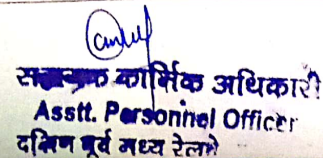 सहायक कार्मिक अधिकारी
Asstt. Personnel Officer
दक्षिण पूर्व मध्य रेलवे